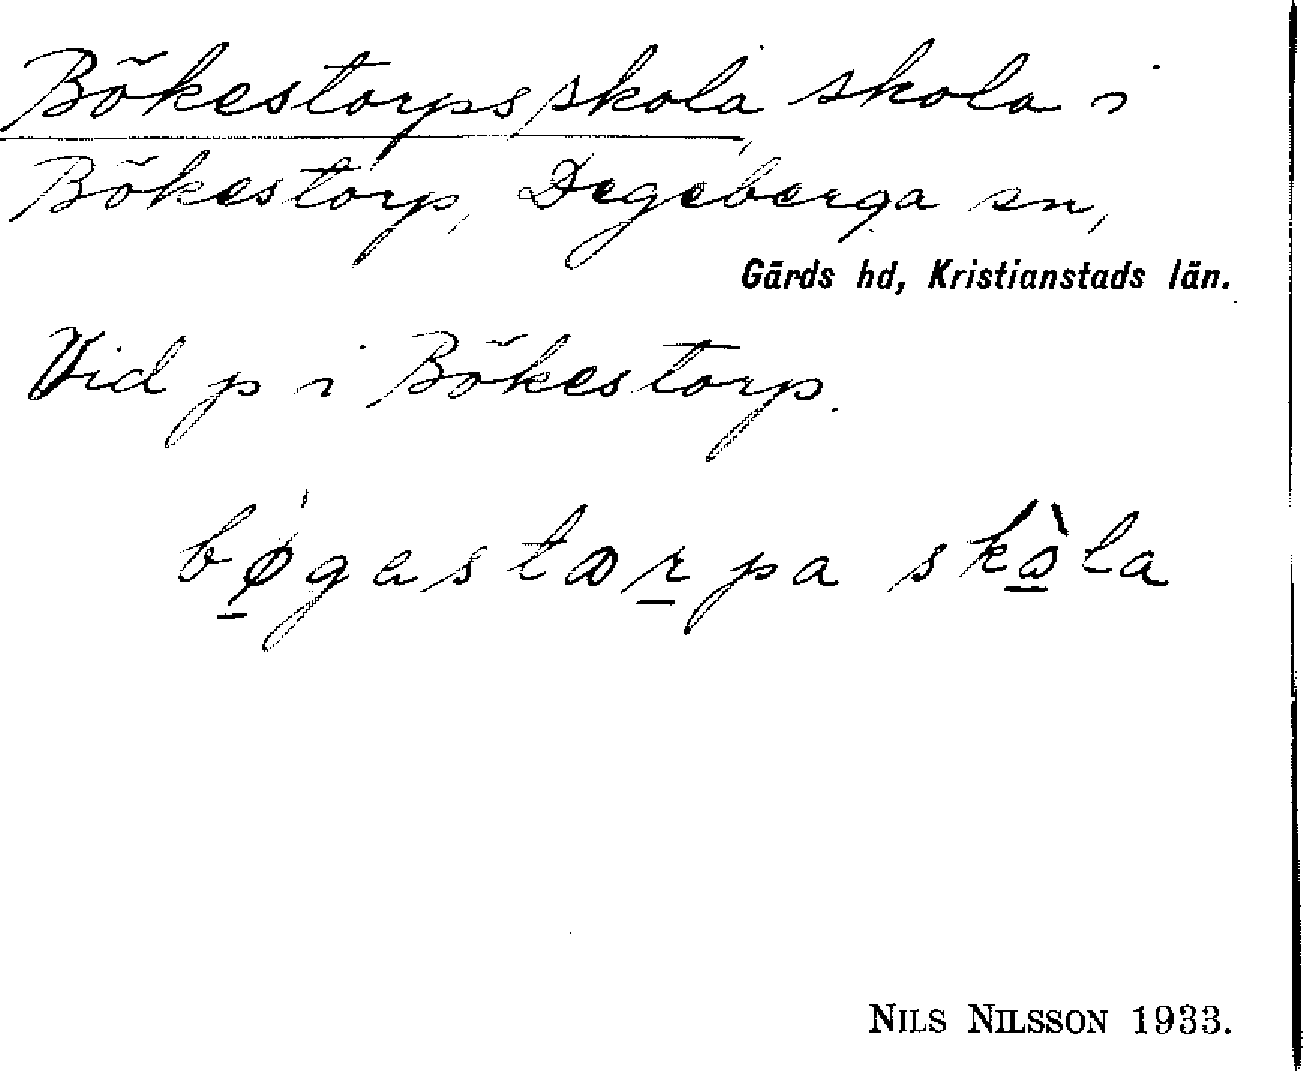 Bökestorpsskola, skola i
Bökestorp, Degeberga sn,
Gärds hd, Kristianstads län.
Vid p i Bökestorp.
bǿ̱gastɒṟpa skò̱la
NILS NILSSON 1933.